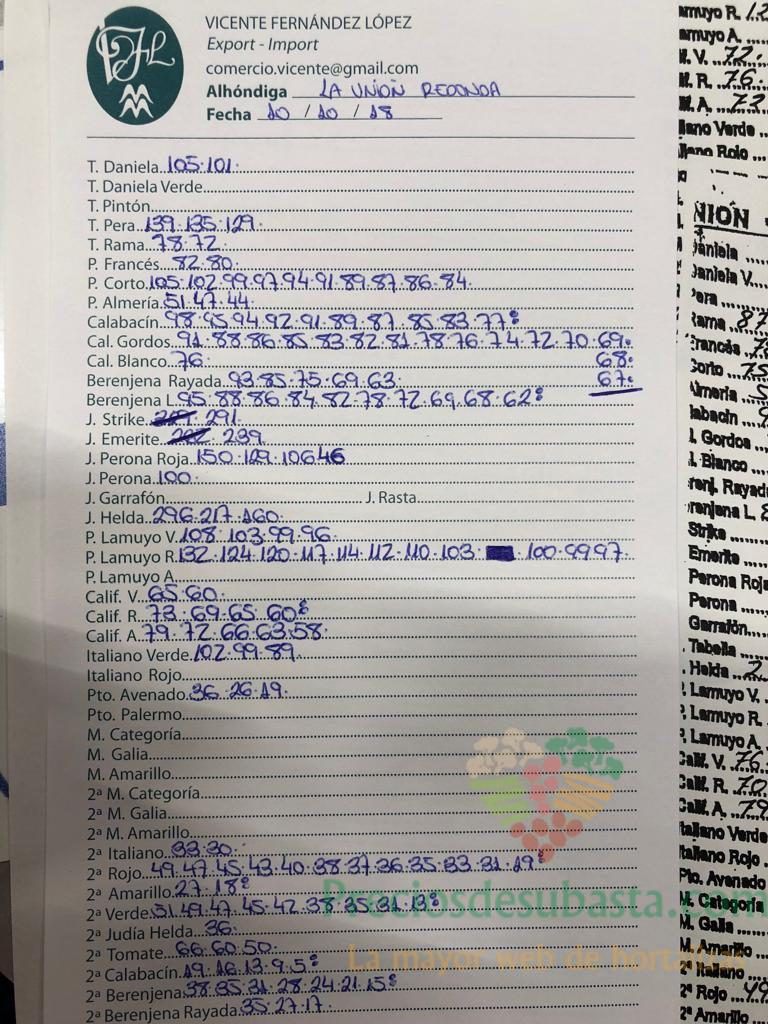 VICENTE FERNÁNDEZ LÓPEZ
Export - Import
comercio.vicente@gmail.com
Alhóndiga LA UNIÓN REDONDA
Fecha 10 / 10 / 18
T. Daniela 105·101·
T. Daniela Verde
T. Pintón
T. Pera 139·135·129·
T. Rama 78·72·
P. Francés 82·80·
P. Corto 105·102·99·97·94·91·89·87·86·84·
P. Almería 51·47·44·
Calabacín 98·95·94·92·91·89·87·85·83·77:
Cal. Gordos 91·88·86·85·83·82·81·78·76·74·72·70·69·
Cal. Blanco 76· 68·
Berenjena Rayada 93·85·75·69·63· 67·
Berenjena L 95·88·86·84·82·78·72·69·68·62:
J. Strike 291·
J. Emerite 239·
J. Perona Roja 150·129·106 46
J. Perona 100·
J. Garrafón J. Rasta
J. Helda 296·217·160·
P. Lamuyo V. 108·103·99·96·
P. Lamuyo R. 132·124·120·117·114·112·110·103· 100·99 97·
P. Lamuyo A
Calif. V. 65·60·
Calif. R. 73·69·65·60:
Calif. A. 79·72·66·63·58·
Italiano Verde 102·99·89·
Italiano Rojo
Pto. Avenado 36·26·19·
Pto. Palermo
M. Categoría
M. Galia
M. Amarillo
2ª M. Categoría
2ª M. Galia
2ª M. Amarillo
2ª Italiano 33·30·
2ª Rojo 49·47·45·43·40·38·37·36·35·33·31·19:
2ª Amarillo 27·18:
2ª Verde 51·49·47·45·42·38·35·31·13:
2ª Judía Helda 36·
2ª Tomate 66·60·50·
2ª Calabacín 19·16·13·9·5:
2ª Berenjena 38·35·31·28·24·21·15:
2ª Berenjena Rayada 35·27·17·
Preciosdesubasta.com
La mayor web de hortalizas
amuyo A.
V. 72·
R. 76·
A. 73
ano Verde
ano Rojo
NIÓN
Daniela
Daniela V.
Pera
Rama 87
Francés
Corto 75
Almería
abacín
l. Gordos
l. Blanco
renj. Rayada
renjena L.
Strike
Emerite
Perona Roja
Perona
Garrafón
Tabella
Helda 2
P. Lamuyo V.
P. Lamuyo R.
P. Lamuyo A.
Calif. V. 76
Calif. R. 70
Calif. A. 79
Italiano Verde
Italiano Rojo
Pto. Avenado
M. Categoría
M. Galia
M. Amarillo
2ª Italiano
2ª Rojo 49
2ª Amarillo